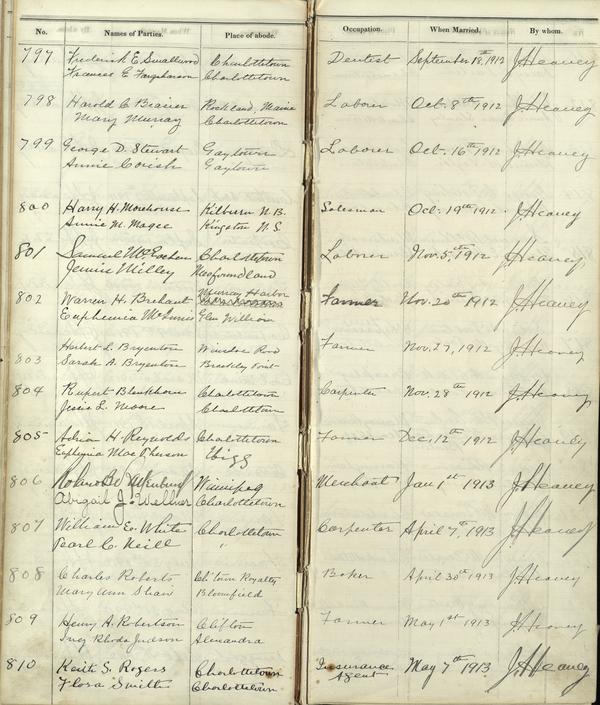 No. Names of Parties. Place of abode. Occupation. When Married. By whom.
797 Frederick E Smallwood Charlottetown Dentist September 18th 1912 J Heaney
Frances E Farquharson Charlottetown
798 Harold C Beasier Rockland, Maine Laborer Oct. 8th 1912 J Heaney
Mary Murray Charlottetown
799 George D Stewart Gaytown Laborer Oct. 16th 1912 J Heaney
Annie Corish Gaytown
800 Harry H. Morehouse Kilburn N.B. Salesman Oct. 19th 1912 J Heaney
Annie M. Magee Kingston N.S.
801 Samuel McEachen Charlottetown Laborer Nov. 5th, 1912 J Heaney
Jennie Milley Newfoundland
Murray Harbor
802 Warren H. Brehaut Farmer Nov. 20th 1912 J Heaney
Euphemia McInnis Glen William
Herbert L. Bryenton Winsloe Road Farmer Nov. 27, 1912 J. Heaney
803 Sarah A. Bryenton Brackley Point
804 Rupert Blenkhorn Charlottetown Carpenter Nov. 28th 1912 J Heaney
Jessie L. Moore Charlottetown
805 Adrian H. Reynolds Charlottetown Farmer Dec. 12th 1912 J Heaney
Euphemia MacPherson Uigg
806 Winnipeg Merchant Jan 1st 1913 J Heaney
Abigail J. Wellner Charlottetown
807 William E. White Charlottetown Carpenter April 7th, 1913 J Heaney
Pearl C. Keill "
808 Charles Roberts Ch'town Royalty Baker April 30th 1913 J. Heaney
Mary Ann Shaw Bloomfield
809 Henry A. Robertson Clifton Farmer May 1st 1913 J. Heaney
Inez Rhoda Judson Alexandra
810 Keith S. Rogers Charlottetown Insurance Agent May 7th 1913 J. Heaney
Flora Smith Charlottetown